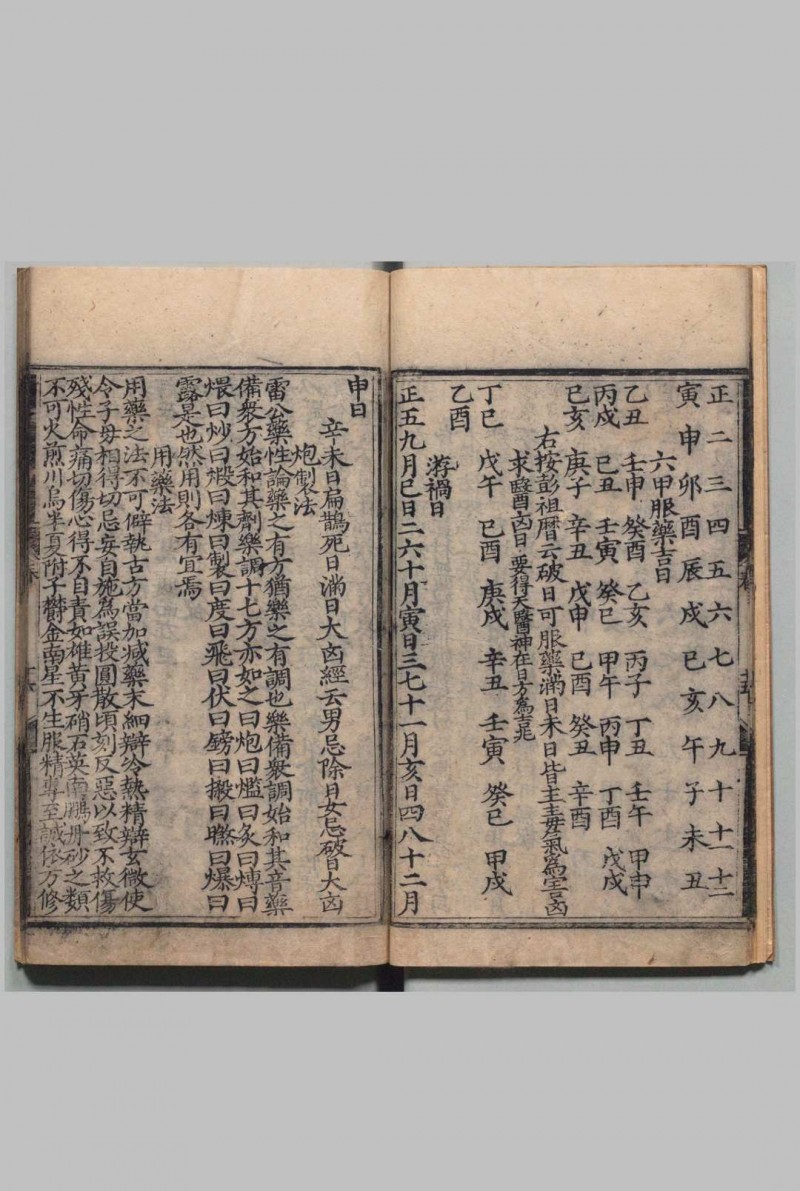 正二三四五六七八九十十一十二
寅申卯酉辰戌巳亥午子未丑
六甲服藥吉日
乙丑 壬申 癸酉 乙亥 丙子 丁丑 壬午 甲申
丙戌 己丑 壬寅 癸巳 甲午 丙申 丁酉 戊戌
己亥 庚子 辛丑 戊申 己酉 癸丑 辛酉
右按彭祖曆云破日可服藥滿日未日皆主毒氣爲害凶
求醫凶日要得天醫神在日方爲吉兆
丁巳 戊午 己酉 庚戌 辛丑 壬寅 癸巳 甲戌
乙酉
游禍日
正五九月巳日二六十月寅日三七十一月亥日四八十二月
申日
辛未日扁鵲死日滿日大凶經云男忌除日女忌破日大凶
炮製法
雷公藥性論藥之有方猶樂之有調也樂備衆調始和其音藥
備衆方始和其劑樂調十七方亦如之曰炮曰爁曰炙曰煿曰
煨曰炒曰煅曰煉曰製曰度曰飛曰伏曰鎊曰摋曰㬠曰爆曰
露是也然用則各有宜焉
用藥法
用藥之法不可僻執古方當加减藥末細辯冷熱精辯玄微使
令子母相得切忌妄自施爲誤投圓散頃刻反惡以致不救傷
殘性命痛切傷心得不自責如雄黃牙硝石英南鵬丹砂之類
不可火煎川烏半夏附子鬱金南星不生服精專至誠依方修